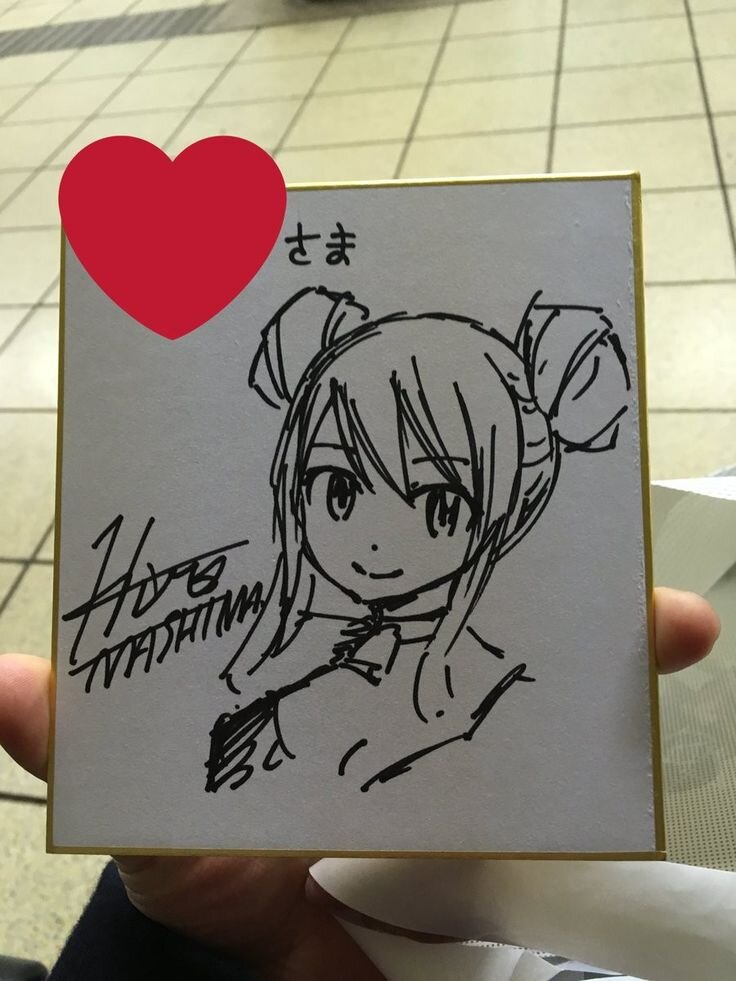 さま
Hiro
MASHIMA